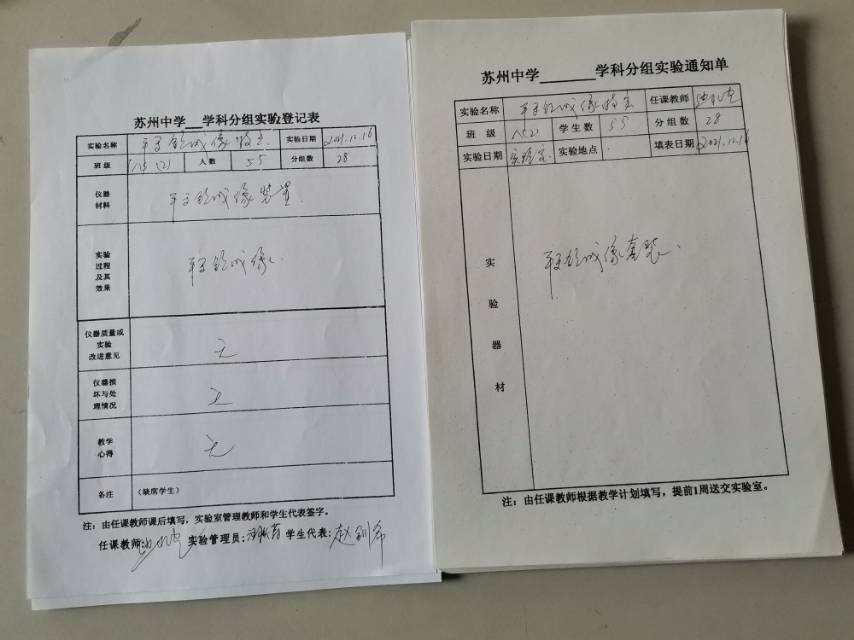 苏州中学___学科分组实验登记表
实验名称 平面镜成像特点 实验日期 2021.12.16
班 级 八(2) 人 数 55 分组数 28
仪器材料 平面镜成像装置.
实验过程及其效果 平面镜成像.
仪器质量或实验改进意见 无
仪器损坏与处理情况 无
教学心得 无
备注 (缺席学生)
注：由任课教师课后填写，实验室管理教师和学生代表签字。
任课教师: 实验管理员: 学生代表:
苏州中学_______学科分组实验通知单
实验名称 平面镜成像特点 任课教师
班 级 八(2) 学生数 55 分组数 28
实验日期 实验室 实验地点 填表日期 2021.12.16
实验器材 平面镜成像套装.
注：由任课教师根据教学计划填写，提前1周送交实验室。